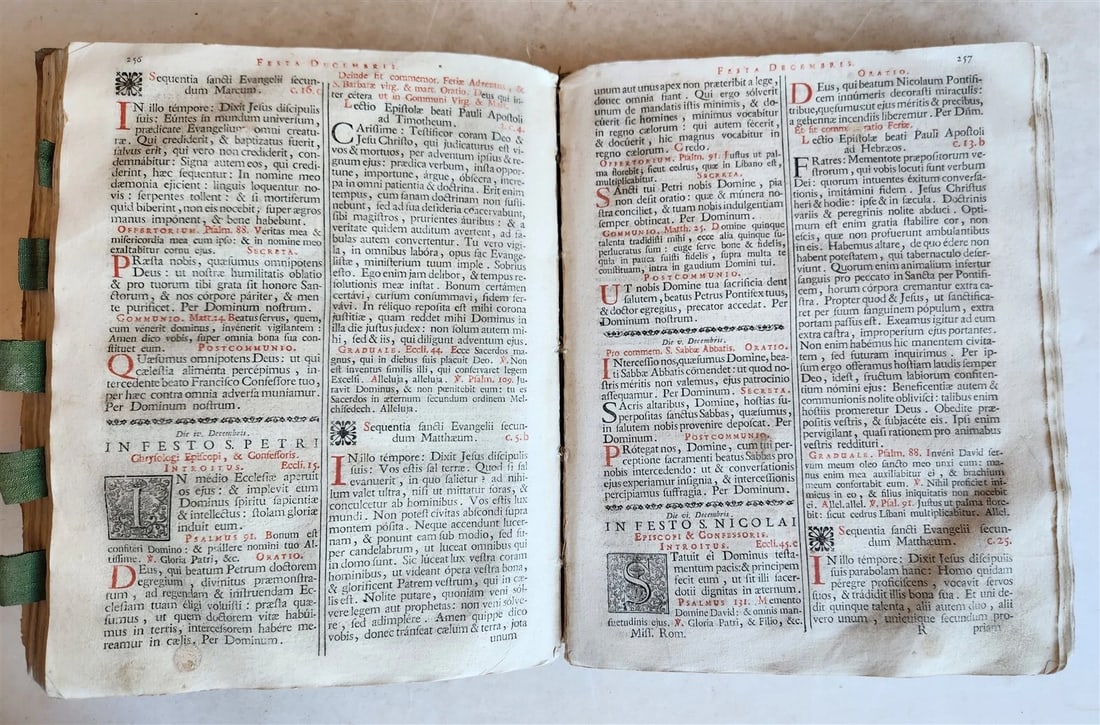 256
FESTA DECEMBRIS.
Sequentia sancti Evangelii secun-
dum Marcum. c. 16. c
IN illo témpore: Dixit Jesus discipulis
suis: Eúntes in mundum universum,
prædicate Evangelium omni creatu-
ræ. Qui crediderit, & baptizatus fuerit,
salvus erit, qui vero non crediderit, con-
demnábitur: Signa autem eos, qui credi-
diderint, hæc sequentur: In nomine meo
dæmonia ejicient: linguis loquentur no-
vis: serpentes tollent: & si mortiferum
quid biberint, non eis nocebit: super ægros
manus impónent, & bene habebunt.
OFFERTORIUM. Psalm. 88. Veritas mea &
misericordia mea cum ipso: & in nomine meo
exaltabitur cornu ejus. SECRETA.
PRæsta nobis, quæsumus omnipotens
Deus: ut nostræ humilitatis oblatio
& pro tuorum tibi grata sit honore San-
ctorum, & nos córpore páriter, & men-
te purificet. Per Dominum nostrum.
COMMUNIO. Matt. 24. Beatus servus, quem,
cum vénerit dominus, invénerit vigilantem:
Amen dico vobis, super omnia bona sua con-
stituet eum. POSTCOMMUNIO.
QUæsumus omnipotens Deus: ut qui
cælestia alimenta percépimus, in-
tercedente beato Francisco Confessore tuo,
per hæc contra omnia adversa muniamur.
Per Dominum nostrum.
Die iv. Decembris.
IN FESTO S. PETRI
Chrysologi Episcopi, & Confessoris.
INTROITUS. Eccli. 15.
IN médio Ecclesiæ aperuit
os ejus: & implevit eum
Dominus spiritu sapientiæ
& intellectus: stolam gloriæ
induit eum.
PSALMUS 91. Bonum est
confitéri Domino: & psállere nomini tuo Al-
tissime. ℣. Gloria Patri, &c. ORATIO.
DEus, qui beatum Petrum doctorem
egregium, divinitus præmonstra-
tum, ad regendam & instruendam Ec-
clesiam tuam éligi voluisti: præsta quæ-
sumus, ut quem doctorem vitæ habúi-
mus in terris, intercessorem habére me-
reamur in cælis. Per Dominum.
Deinde fit commemor. Feriæ Adventus, &
S. Barbaræ virg. & mart. Oratio. Deus qui in-
ter cétera ut in Communi Virg. & Mart.
Lectio Epistolæ beati Pauli Apostoli
ad Timotheum. c. 4.
CArissime: Testificor coram Deo &
Jesu Christo, qui judicaturus est vi-
vos & mórtuos, per adventum ipsius & re-
gnum ejus: prædica verbum, insta oppor-
tune, importune, árgue, óbsecra, íncre-
pa in omni patientia & doctrina. Erit enim
tempus, cum sanam doctrinam non susti-
nebunt, sed ad sua desideria coacervabunt,
sibi magistros, prurientes auribus: & a
veritate quidem auditum avertent, ad fa-
bulas autem convertentur. Tu vero vigi-
la, in omnibus labóra, opus fac Evange-
listæ, ministerium tuum imple. Sobrius
esto. Ego enim jam delibor, & tempus re-
solutionis meæ instat. Bonum certámen
certávi, cursum consummavi, fidem ser-
vávi. In réliquo reposita est mihi corona
justitiæ, quam reddet mihi Dominus in
illa die justus judex: non solum autem mi-
hi, sed & iis, qui diligunt adventum ejus.
GRADUALE. Eccli. 44. Ecce Sacerdos ma-
gnus, qui in diebus suis placuit Deo. ℣. Non
est inventus similis illi, qui conservaret legem
Excelsi. Alleluja, alleluja. ℣. Psalm. 109. Ju-
ravit Dominus, & non penitébit eum: tu es
Sacerdos in æternum secundum ordinem Mel-
chisedech. Alleluja.
Sequentia sancti Evangelii secun-
dum Matthæum. c. 5. b
IN illo témpore: Dixit Jesus discipulis
suis: Vos estis sal terræ. Quod si sal
evanuerit, in quo salietur? ad níhi-
lum valet ultra, nisi ut mittatur foras, &
conculcetur ab hominibus. Vos estis lux
mundi. Non potest civitas abscondi supra
montem pósita. Neque accendunt lucer-
nam, & ponunt eam sub modio, sed su-
per candelabrum, ut luceat omnibus qui
in domo sunt. Sic luceat lux vestra coram
hominibus, ut videant ópera vestra bona,
& glorificent Patrem vestrum, qui in cæ-
lis est. Nolite putare, quoniam veni sól-
vere legem aut prophetas: non veni sólve-
re, sed adimplére. Amen quippe dico
vobis, donec tránseat cælum & terra, jota
unum
FESTA DECEMBRIS.
257
unum aut unus apex non præteribit a lege,
donec omnia fiant. Qui ergo sólverit
unum de mandatis istis minimis, & do-
cúerit sic homines, minimus vocabitur in
regno cælorum: qui autem fécerit,
& docúerit, hic magnus vocabitur in
regno cælorum. Credo.
OFFERTORIUM. Psalm. 91. Justus ut pal-
ma florebit; sicut cedrus, quæ in Libano est,
multiplicabitur. SECRETA.
SAncti tui Petri nobis Domine, pia
non desit oratio: quæ & múnera no-
stra conciliet, & tuam nobis indulgentiam
semper obtineat. Per Dominum.
COMMUNIO. Matth. 25. Domine quinque
talenta tradidisti mihi, ecce alia quinque su-
perlucratus sum: euge serve bone & fidelis,
quia in pauca fuisti fidelis, supra multa te
constituam, intra in gaudium Domini tui.
POSTCOMMUNIO.
UT nobis Domine tua sacrificia dent
salutem, beatus Petrus Pontifex tuus,
& doctor egregius, precator accedat. Per
Dominum nostrum.
Die v. Decembris.
Pro commem. S. Sabbæ Abbatis. ORATIO.
INtercessio nos, quæsumus Domine, bea-
ti Sabbæ Abbatis cómendet: ut quod no-
stris méritis non valemus, ejus patrocinio
assequamur. Per Dominum. SECRETA.
SAcris altaribus, Domine, hostias su-
perpositas sanctus Sabbas, quæsumus,
in salutem nobis provenire deposcat. Per
Dominum. POSTCOMMUNIO.
PRótegat nos, Domine, cum tui per-
ceptione sacramenti beatus Sabbas pro
nobis intercedendo: ut & conversationis
ejus experiamur insignia, & intercessionis
percipiamus suffragia. Per Dominum.
Die vi. Decembris.
IN FESTO S. NICOLAI
EPISCOPI & CONFESSORIS.
INTROITUS. Eccli. 45. e
STatuit ei Dominus testa-
mentum pacis: & principem
fecit eum, ut sit illi sacer-
dotii dignitas in æternum.
PSALMUS 131. Memento
Domine David: & omnis man-
suetudinis ejus. ℣. Gloria Patri, & Filio, &c.
Miss. Rom.
ORATIO.
DEus, qui beatum Nicolaum Pontifi-
cem innúmeris decorasti miraculis:
tribue, quæsumus ut ejus méritis & précibus,
a gehennæ incendiis liberemur. Per Dñm.
Et fit commemoratio Feriæ.
Lectio Epistolæ beati Pauli Apostoli
ad Hebræos. c. 13. b
FRatres: Mementote præpositórum ve-
strorum, qui vobis locuti sunt verbum
Dei: quorum intuentes éxitum conversa-
tionis, imitámini fidem. Jesus Christus
heri & hodie: ipse & in sæcula. Doctrinis
variis & peregrinis nolite abduci. Opti-
mum est enim gratia stabilire cor, non
escis, quæ non profuerunt ambulantibus
in eis. Habemus altare, de quo édere non
habent potestatem, qui tabernaculo deser-
viunt. Quorum enim animalium infertur
sanguis pro peccato in Sancta per Pontifi-
cem, horum córpora cremantur extra ca-
stra. Propter quod & Jesus, ut sanctifica-
ret per suum sanguinem pópulum, extra
portam passus est. Exeamus ígitur ad eum
extra castra, improperium ejus portantes.
Non enim habémus hic manentem civita-
tem, sed futuram inquirimus. Per ip-
sum ergo offeramus hostiam laudis semper
Deo, idest, fructum labiorum confiten-
tium nómini ejus: Beneficentiæ autem &
communionis nolite oblivisci: talibus enim
hóstiis promeretur Deus. Obedite præ-
pósitis vestris, & subjacéte eis. Ipsi enim
pervigilant, quasi rationem pro animabus
vestris reddituri.
GRADUALE. Psalm. 88. Invéni David ser-
vum meum oleo sancto meo unxi eum: ma-
nus enim mea auxiliabitur ei, & brachium
meum confortabit eum. ℣. Nihil proficiet ini-
micus in eo, & filius iniquitatis non nocebit
ei. Allel. allel. ℣. Psal. 91. Justus ut palma flore-
bit: sicut cedrus Libani multiplicabitur. Allel.
Sequentia sancti Evangelii secun-
dum Matthæum. c. 25.
IN illo témpore: Dixit Jesus discipulis
suis parabolam hanc: Homo quidam
péregre proficiscens, vocavit servos
suos, & trádidit illis bona sua. Et uni de-
dit quinque talenta, alii autem duo, alii
vero unum, unicuique secundum pro-
R priam